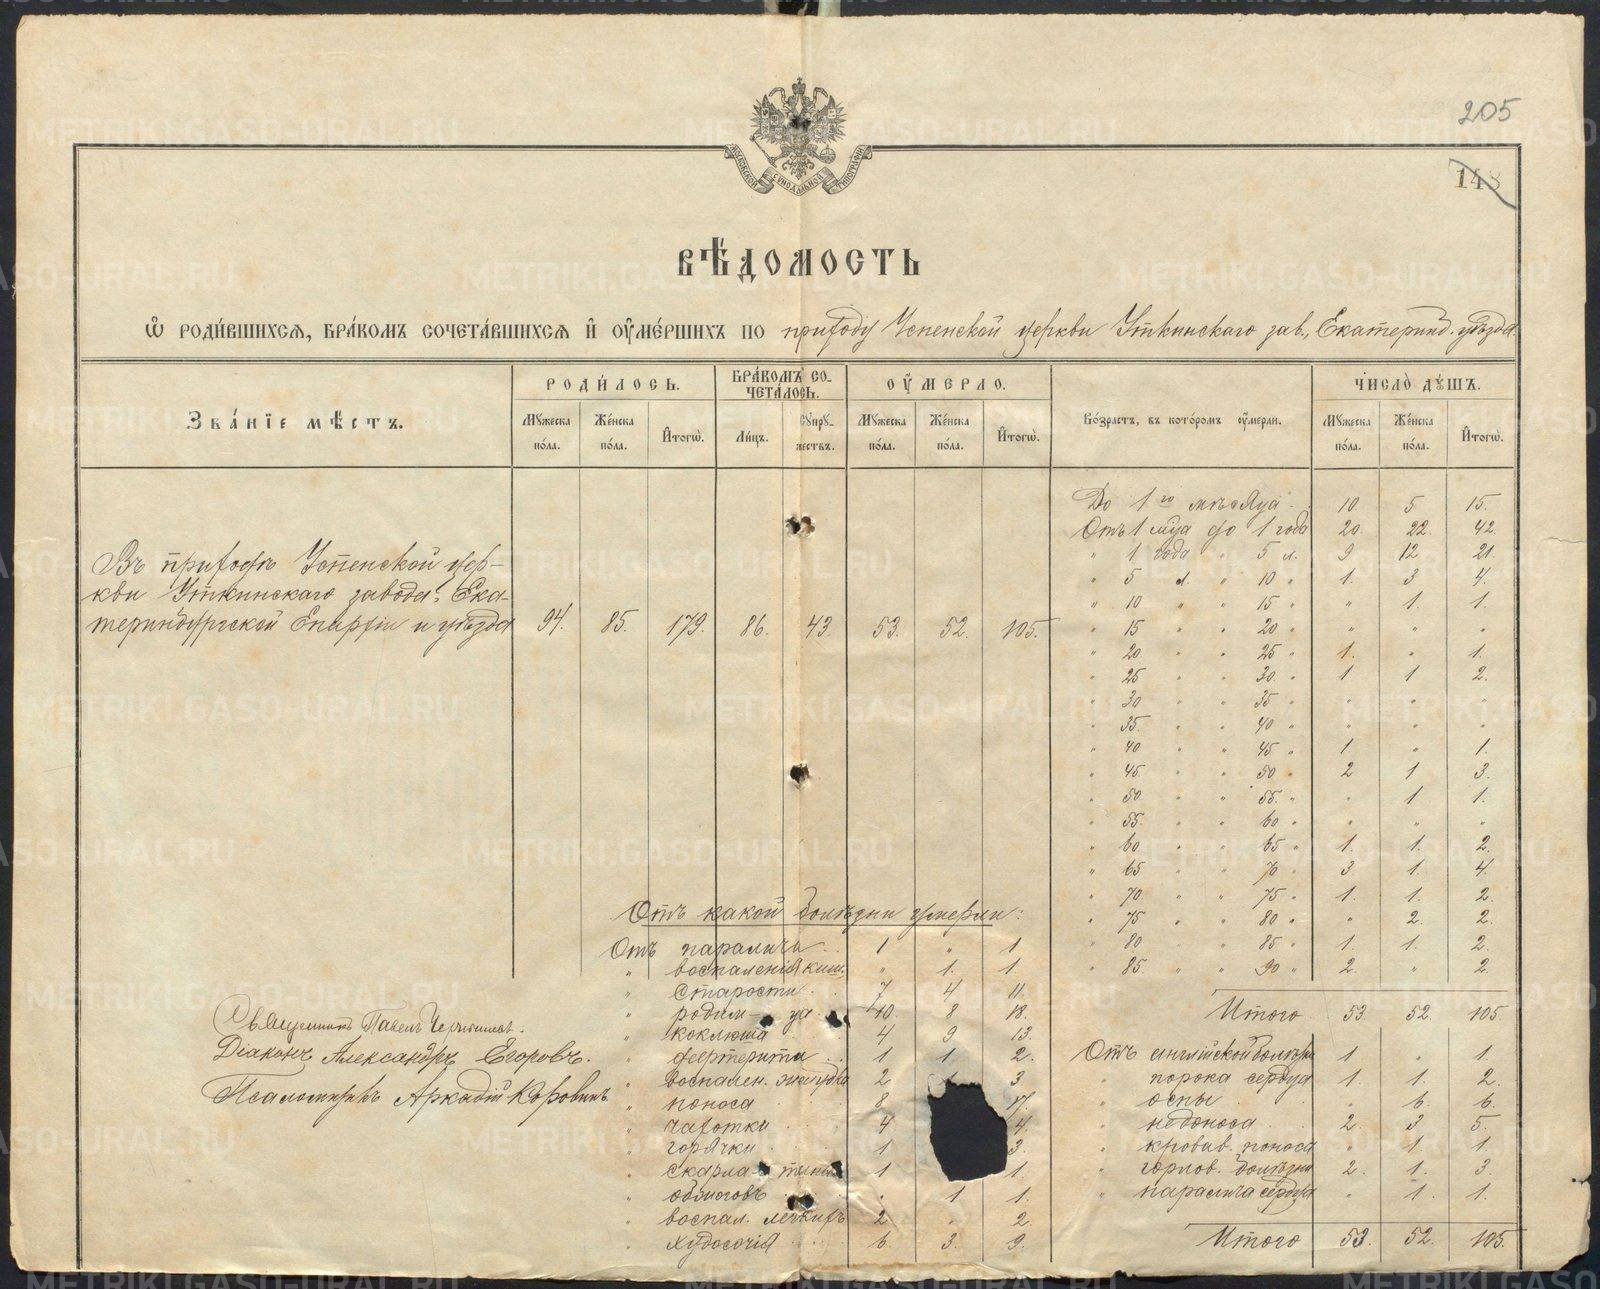 205
148
МОСКОВСКОЙ СѴНОДАЛЬНОЙ ТИПОГРАФІИ
ВѢДОМОСТЬ
Ѿ РОДИ́ВШИХСѦ, БРА́КОМЪ СОЧЕТА́ВШИХСѦ И҆ ОУ҆МЕ́РШИХЪ ПО приходу Успенской церкви Уткинскаго зав., Екатеринб. уѣзда.
ЗВА́НІЕ МѢ́СТЪ. РОДИ́ЛОСЬ. БРА́КОМЪ СОЧЕТА́ЛОСЬ. ОУ҆́МЕРЛО. Во́зрастъ, въ кото́ромъ ᲂу҆́мерли. ЧИСЛО̀ ДꙊ́ШЪ.
Мꙋ́жеска по́ла. Же́нска по́ла. И҆тогѡ̀. Ли́цъ. Сꙋпрꙋ́жествъ. Мꙋ́жеска по́ла. Же́нска по́ла. И҆тогѡ̀. Мꙋ́жеска по́ла. Же́нска по́ла. И҆тогѡ̀.
Въ приходѣ Успенской цер-
кви Уткинскаго завода, Ека-
теринбургской Епархіи и уѣзда 94. 85. 179. 86. 43. 53. 52. 105.
До 1го мѣсяца 10. 5 15.
Отъ 1 мца до 1 года 20. 22. 42.
" 1 года " 5 л. 9 12 21.
" 5 л. " 10 " 1. 3 4.
" 10 " " 15 " " 1. 1.
" 15 " " 20 " " " "
" 20. " " 25 " 1. " 1.
" 25 " " 30. " 1 1 2.
" 30 " " 35 " " " "
" 35. " " 40 " " " "
" 40 " " 45 " 1 " 1.
" 45 " " 50 " 2 1 3.
" 50. " " 55. " " 1 1.
" 55. " " 60 " " " "
" 60 " " 65 " 1. 1. 2.
" 65 " " 70 " 3 1. 4.
" 70 " " 75 " 1. 1. 2.
" 75 " " 80 " " 2. 2.
" 80 " " 85 " 1. 1. 2.
" 85. " " 90 " 2. " 2.
Итого 53. 52. 105.
Отъ какой болѣзни умерли:
Отъ паралича 1 " 1
" воспаленія киш. " 1. 1
" старости 7 4 11.
" родим- ца 10. 8 18.
" коклюша 4 9 13.
" дифтерита 1 1. 2.
" воспален. желудка 2 1 3.
" поноса 8 17.
" чахотки 4 4.
" горячки 1 3.
" скарла- тины 1 1.
" обжоговъ " 1 1.
" воспал. легкихъ 2 " 2.
" худосочія 6 3. 9.
Отъ англійской болѣзни 1 " 1.
" порока сердца 1 1. 2.
" оспы " 6. 6.
" недоноса 2. 3 5.
" кровав. поноса " 1 1.
" горлов. болѣзни 2. 1. 3
" паралича сердца " 1. 1.
Итого 53. 52. 105.
Священникъ Павелъ
Діаконъ Александръ Егоровъ.
Псаломщикъ Аркадій Коровинъ.
METRIKI.GASO-URAL.RU